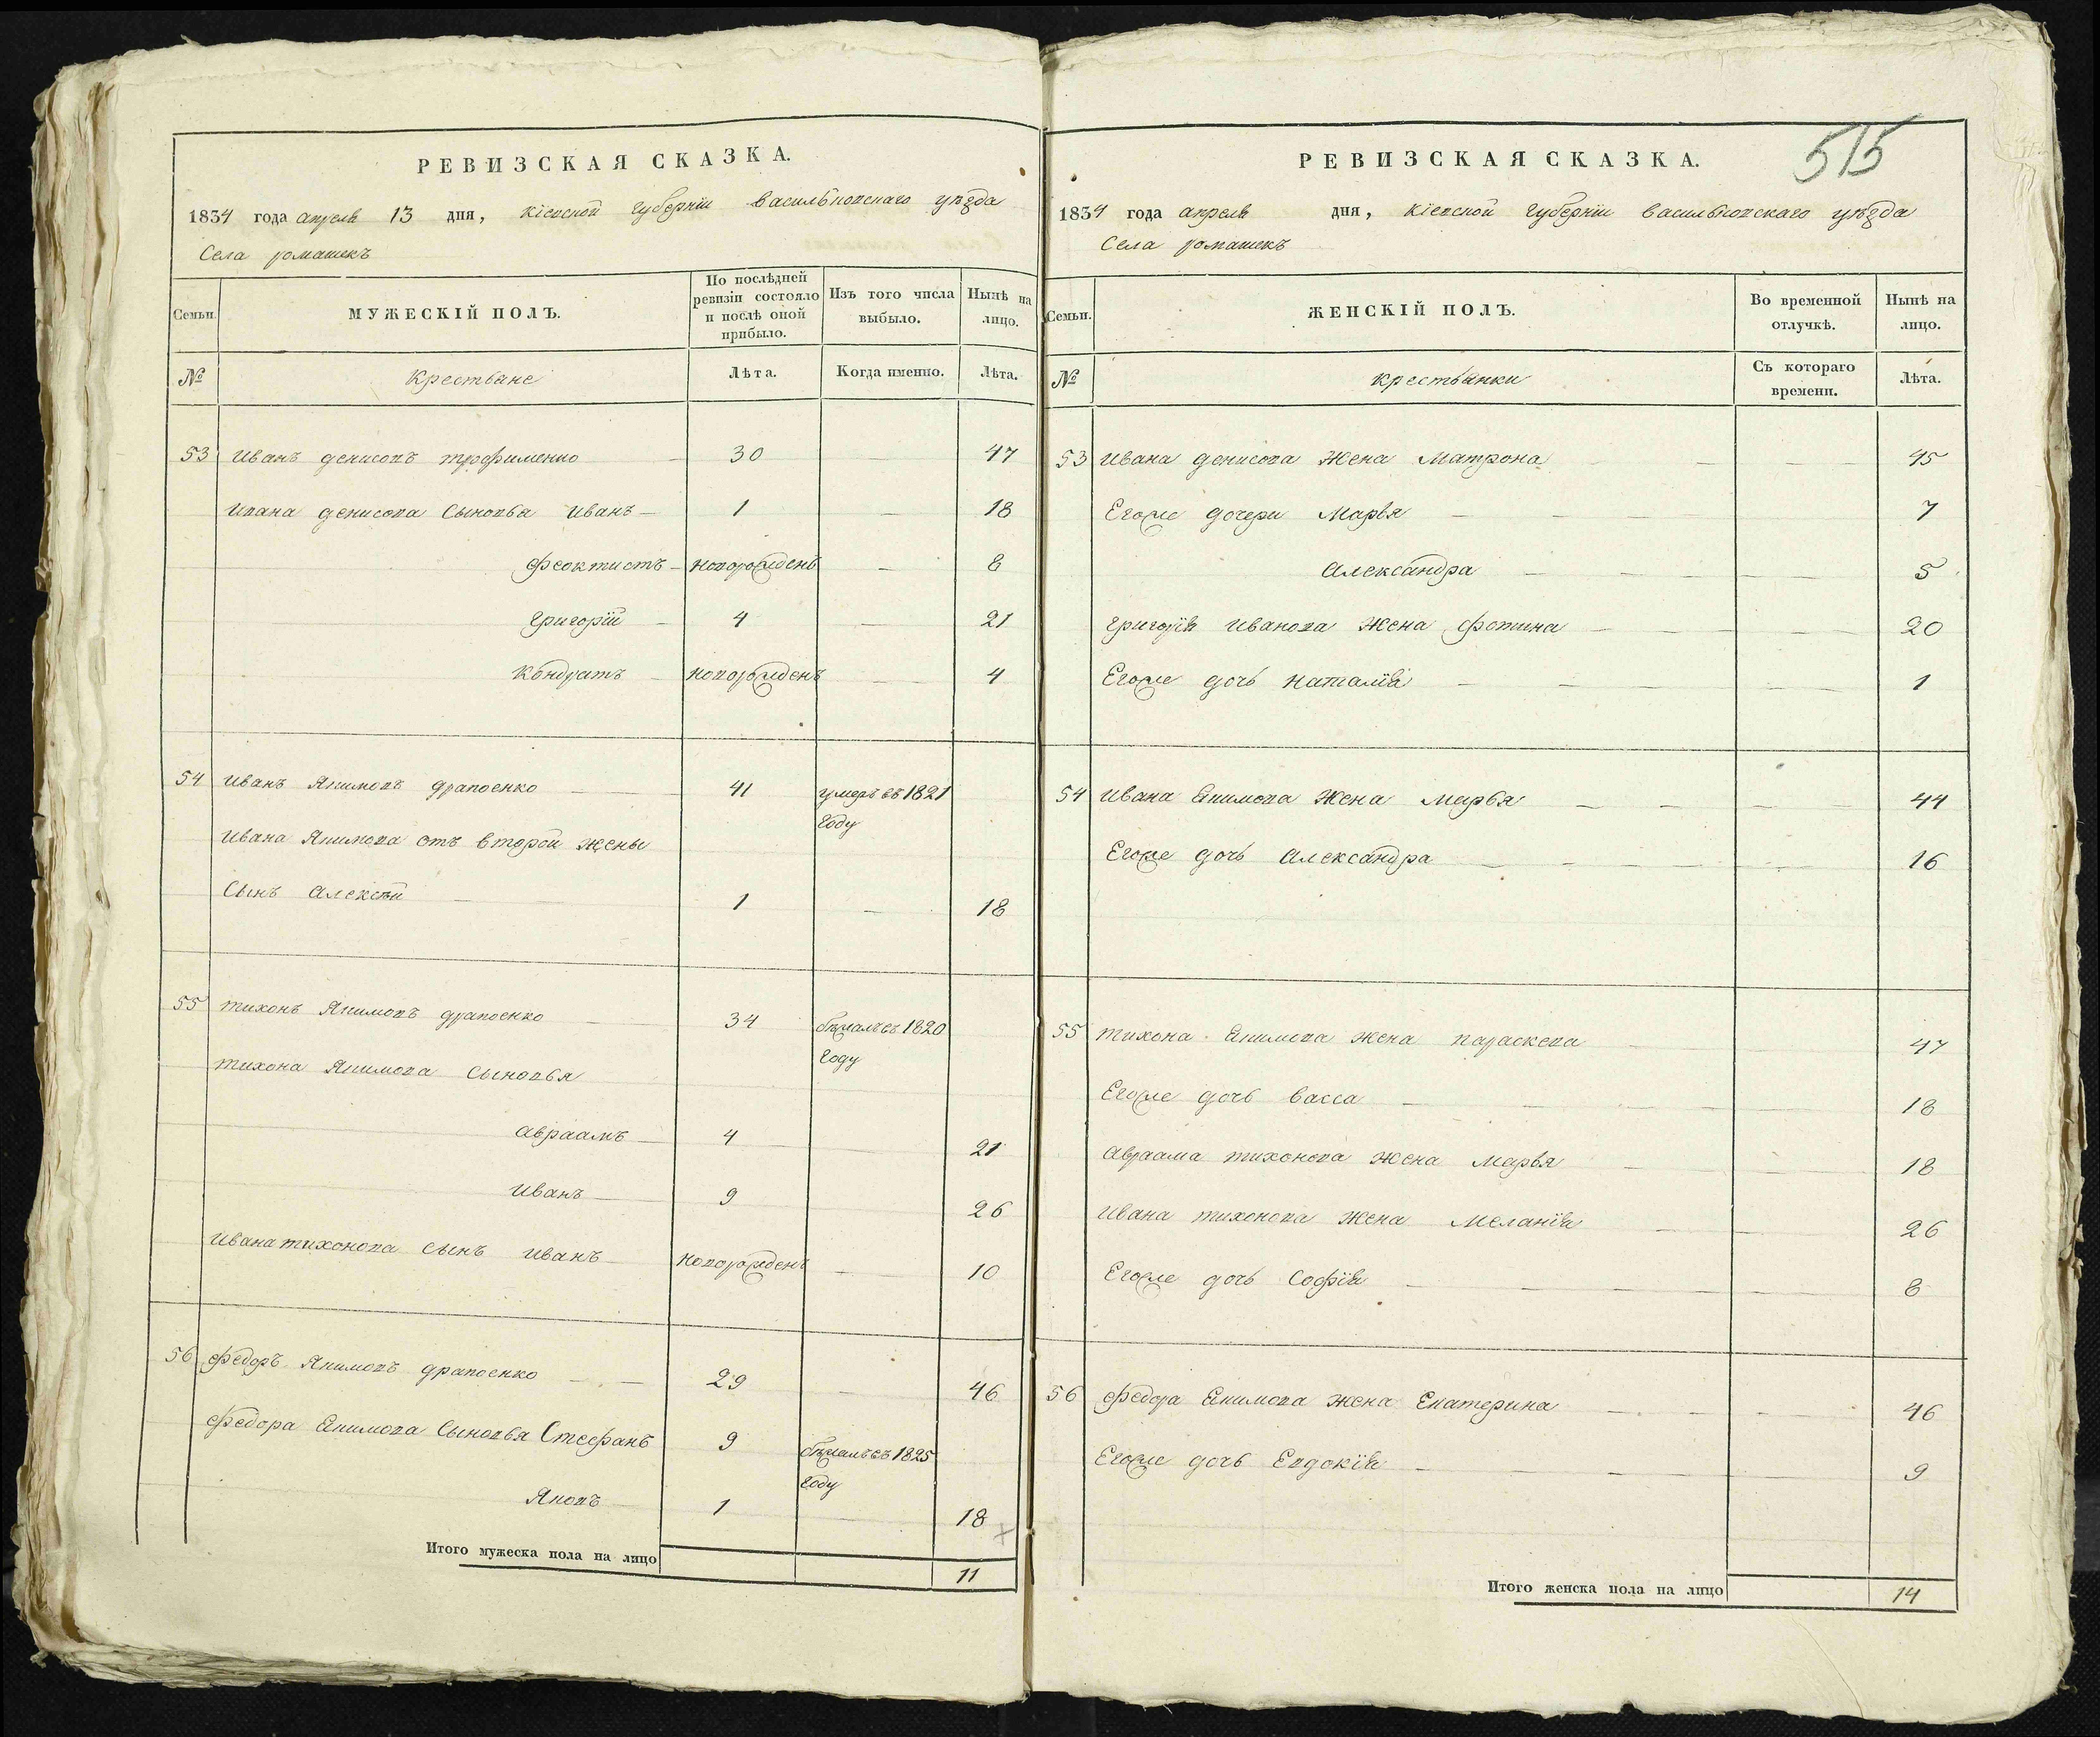 РЕВИЗСКАЯ СКАЗКА.
1834 года апреля 13 дня, Кіевской губерніи Васильковскаго уѣзда
Села Ромашекъ
Семьи.
МУЖЕСКІЙ ПОЛЪ.
По послѣдней ревизіи состояло и послѣ оной прибыло.
Изъ того числа выбыло.
Нынѣ на лицо.
№
Крестьяне
Лѣта.
Когда именно.
Лѣта.
53 Иванъ Денисовъ Трофименко 30 — 47
Ивана Денисова сыновья Иванъ — 1 — 18
Феоктистъ — новорожденъ — 8
Григорій — 4 — 21
Кондратъ — новорожденъ — 4
54 Иванъ Якимовъ Драпоенко — 41 умеръ въ 1821
году
Ивана Якимова отъ второй жены
Сынъ Алексѣй — 1 — 18
55 Тихонъ Якимовъ Драпоенко — 34 бѣжалъ въ 1820
году
Тихона Якимова сыновья
Авраамъ — 4 — 21
Иванъ — 9 — 26
Ивана Тихонова сынъ Иванъ — новорожденъ — 10
56 Федоръ Якимовъ Драпоенко — 29 — 46
Федора Екимова сыновья Стефанъ 9 бѣжалъ въ 1825
году
Яковъ — 1 — 18
Итого мужеска пола на лицо 11
515
РЕВИЗСКАЯ СКАЗКА.
1834 года апреля дня, Кіевской губерніи Васильковскаго уѣзда
Села Ромашекъ
Семьи.
ЖЕНСКІЙ ПОЛЪ.
Во временной отлучкѣ.
Нынѣ на лицо.
№
Крестьянки
Съ котораго времени.
Лѣта.
53 Ивана Денисова жена Матрона — 45
Егоже дочери Марья — 7
Александра — 5
Григорія Иванова жена Фотина — 20
Егоже дочь Наталія — 1
54 Ивана Екимова жена Марья — 44
Егоже дочь Александра — 16
55 Тихона Екимова жена Параскева — 47
Егоже дочь Васса — 18
Авраама Тихонова жена Марья — 18
Ивана Тихонова жена Меланія — 26
Егоже дочь Софія — 8
56 Федора Екимова жена Екатерина — 46
Егоже дочь Евдокія — 9
Итого женска пола на лицо 14